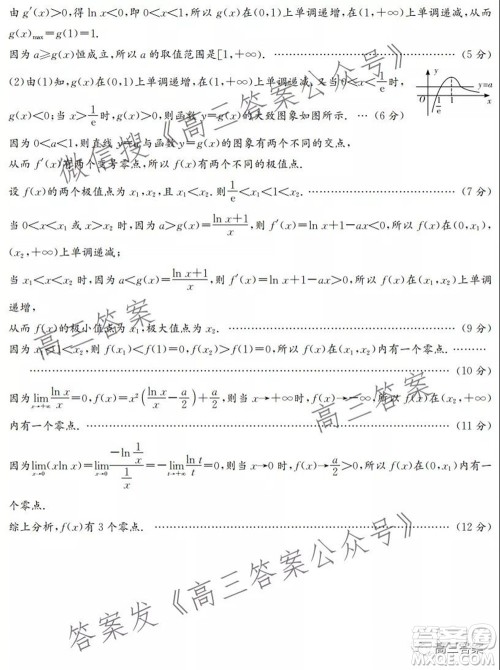 由 g′(x)>0,得 ln x<0,即 0<x<1,所以 g(x)在(0,1)上单调递增,在(1,+∞)上单调递减,从而
g(x)max=g(1)=1.
因为 a≥g(x)恒成立,所以 a 的取值范围是[1,+∞). (5 分)
(2)由(1)知,g(x)在(0,1)上单调递增,在(1,+∞)上单调递减,又当 0<x<1/e 时,
g(x)<0;当 x>1/e 时,g(x)>0,则函数 y=g(x)的大致图象如图所示. … (6 分)
y
y=a
O
1/e
1
x
因为 0<a<1,则直线 y=a 与函数 y=g(x)的图象有两个不同的交点,
从而 f′(x)有两个变号零点,所以 f(x)有两个不同的极值点.
设 f(x)的两个极值点为 x₁,x₂,且 x₁<x₂,则 1/e<x₁<1<x₂. (7 分)
当 0<x<x₁ 或 x>x₂ 时,因为 a>g(x)=(ln x+1)/x,则 f′(x)=ln x+1-ax<0,所以 f(x)在(0,x₁),
(x₂,+∞)上单调递减;
当 x₁<x<x₂ 时,因为 a<g(x)=(ln x+1)/x,则 f′(x)=ln x+1-ax>0,所以 f(x)在(x₁,x₂)上单调
递增,
从而 f(x)的极小值点为 x₁,极大值点为 x₂. (9 分)
因为 x₁<1<x₂,则 f(x₁)<f(1)=0,f(x₂)>f(1)=0,所以 f(x)在(x₁,x₂)内有一个零点. ………
(10 分)
因为 lim(x→+∞) ln x/x=0,f(x)=x²(ln x/x-a/2)+a/2,则当 x→+∞时,f(x)→-∞,所以 f(x)在(x₂,+∞)
内有一个零点. (11 分)
因为 lim(x→0)(xln x)=lim(x→0) (-ln 1/x)/(1/x)=-lim(t→+∞) ln t/t=0,则当 x→0 时,f(x)→a/2>0,所以 f(x)在(0,x₁)内有一
个零点.
综上分析,f(x)有 3 个零点. (12 分)
微信搜《高三答案公众号》
高三答案
高三答案
答案发《高三答案公众号》
高三答案
答案圈
MXQE.COM